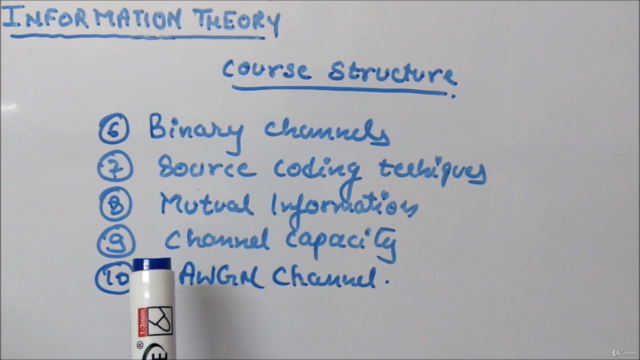 INFORMATION THEORY
Course Structure
6 Binary channels
7 Source coding techiques
8 Mutual Information
9 Channel Capacity
10 AWGN Channel.
1-3mm